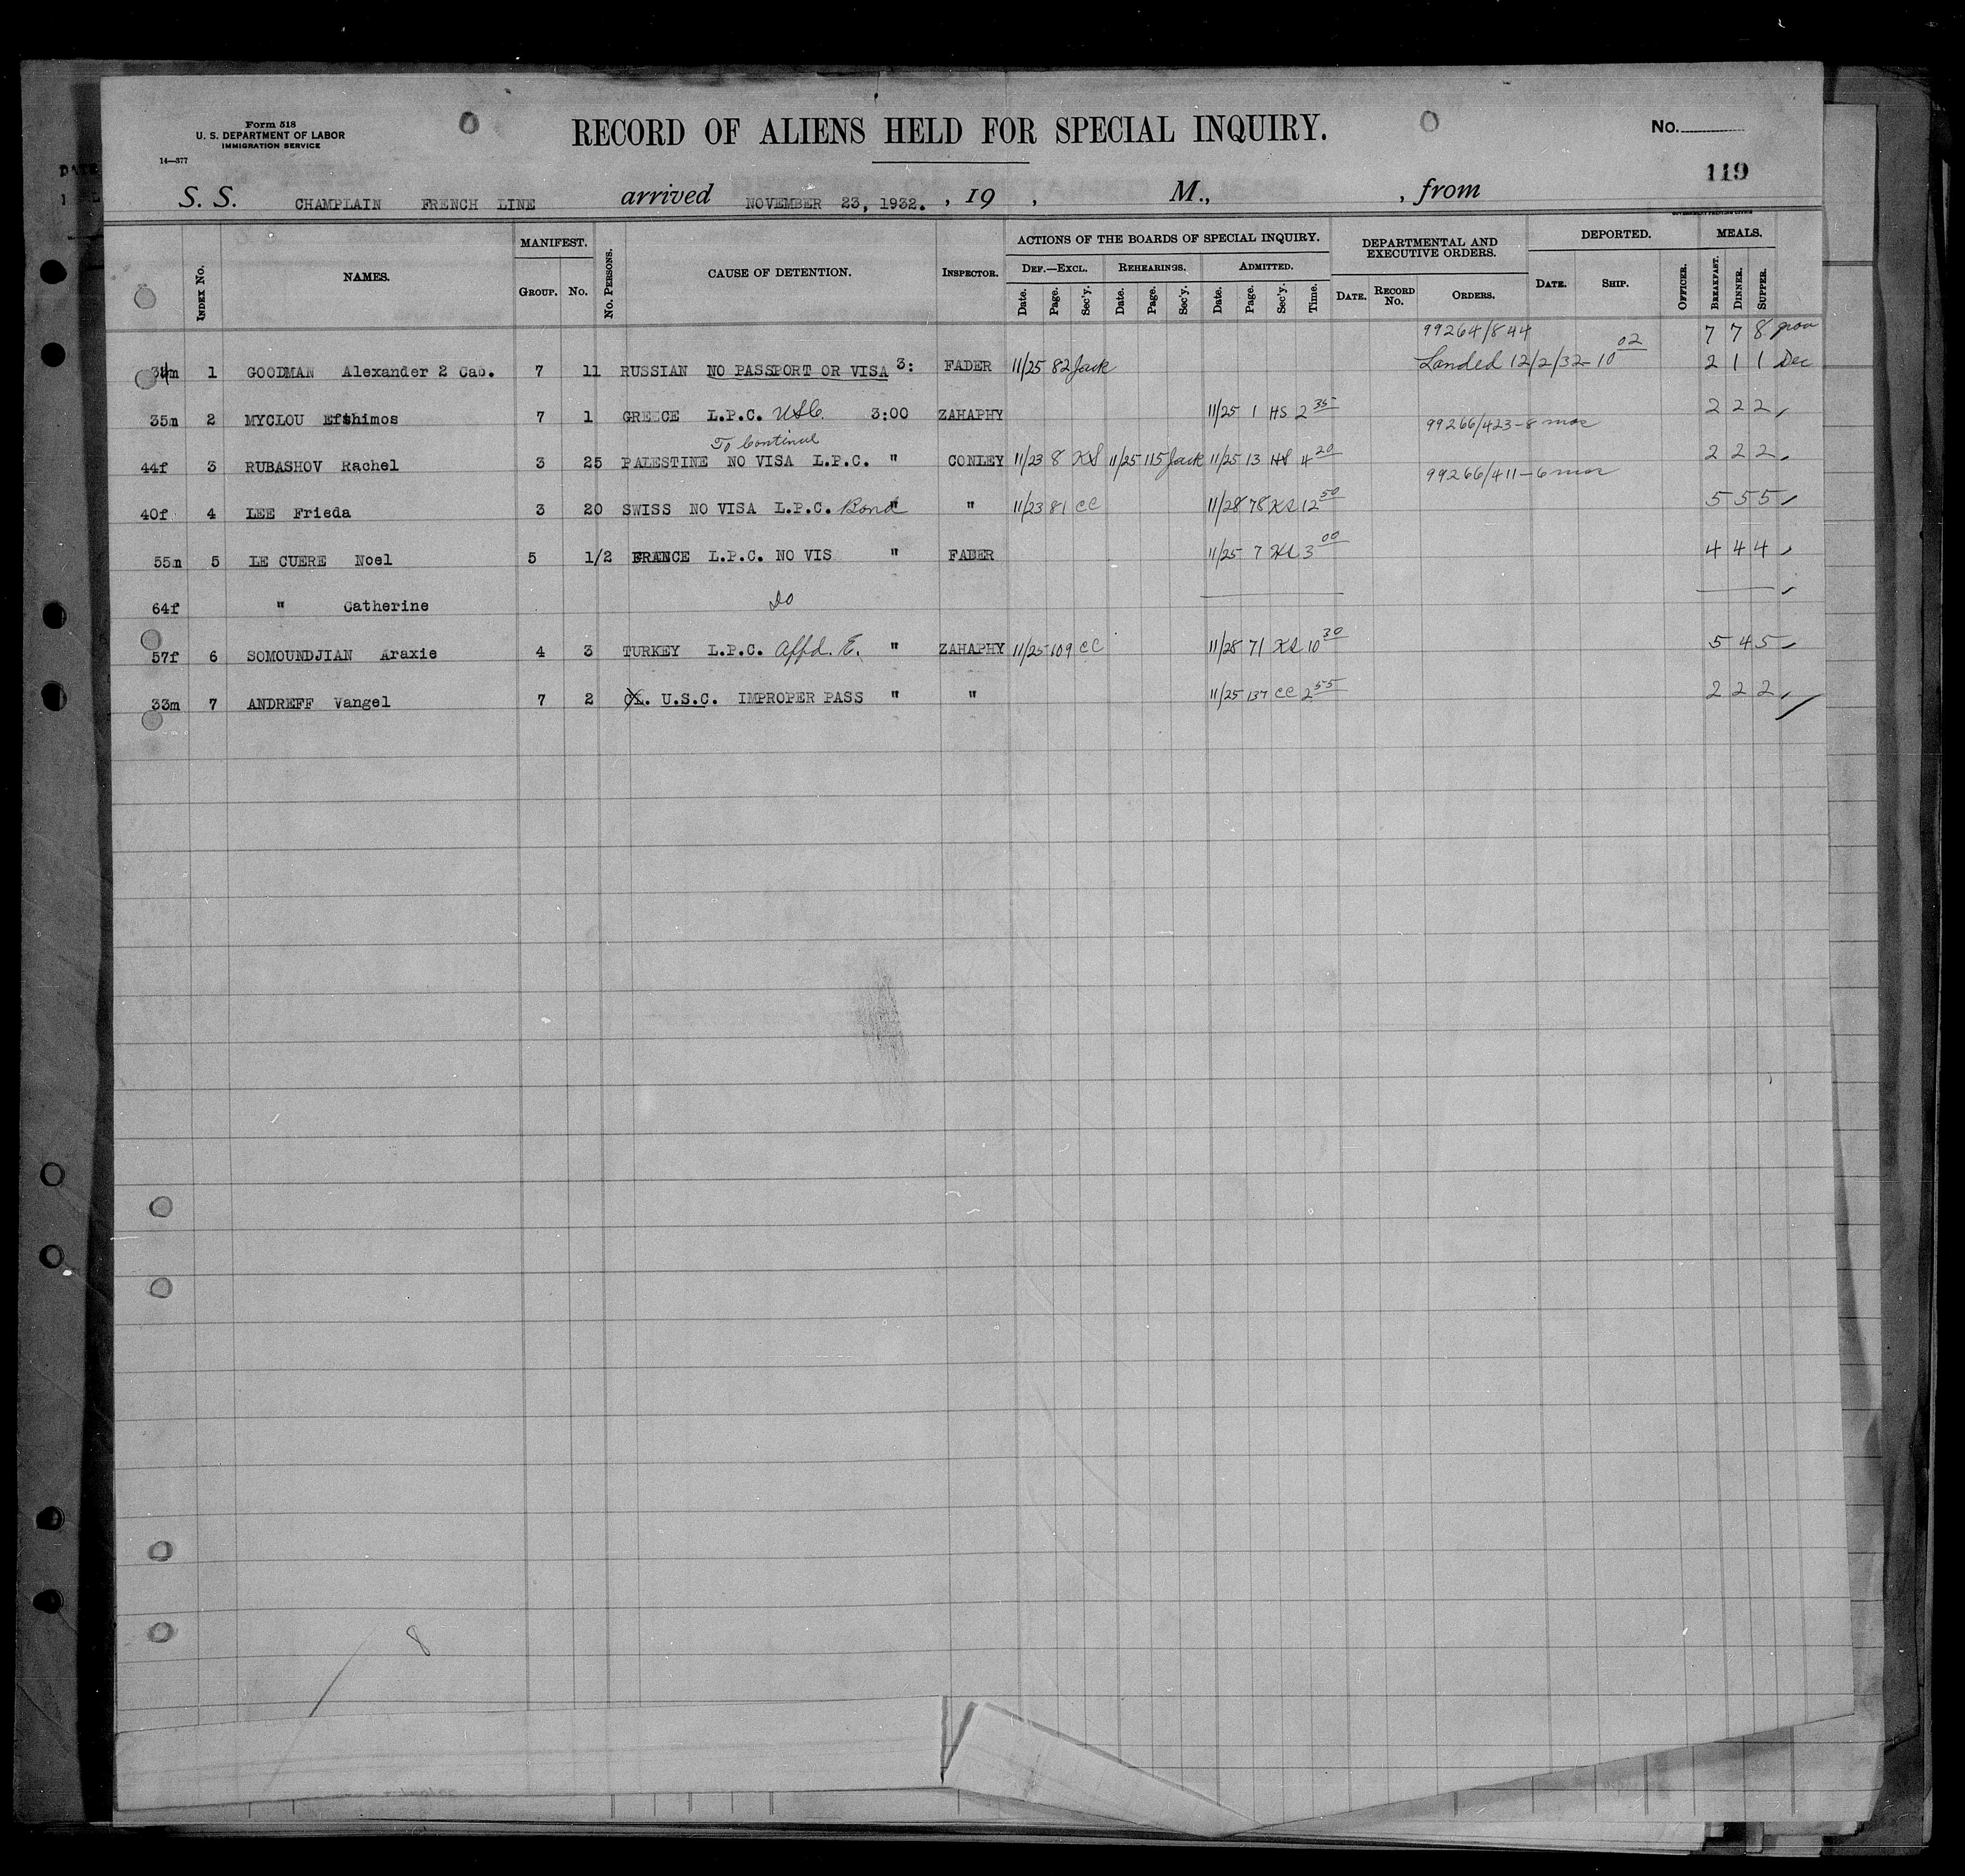 Form 518
U. S. DEPARTMENT OF LABOR
IMMIGRATION SERVICE
14—377
RECORD OF ALIENS HELD FOR SPECIAL INQUIRY.
No.
119
S. S. CHAMPLAIN FRENCH LINE arrived NOVEMBER 23, 1932. , 19 , M., , from
GOVERNMENT PRINTING OFFICE
INDEX No. NAMES. MANIFEST. GROUP. No. No. PERSONS. CAUSE OF DETENTION. INSPECTOR.
ACTIONS OF THE BOARDS OF SPECIAL INQUIRY.
DEF.—EXCL. Date. Page. Sec'y. REHEARINGS. Date. Page. Sec'y. ADMITTED. Date. Page. Sec'y. Time.
DEPARTMENTAL AND EXECUTIVE ORDERS. DATE. RECORD No. ORDERS.
DEPORTED. DATE. SHIP. OFFICER.
MEALS. BREAKFAST. DINNER. SUPPER.
99264/844 7 7 8
1 GOODMAN Alexander 2 Cab. 7 11 RUSSIAN NO PASSPORT OR VISA 3: FADER 11/25 82 Jack Landed 12/2/32 - 10 02 2 1 1 Dec
35m 2 MYCLOU Efthimos 7 1 GREECE L.P.C. USC 3:00 ZAHAPHY 11/25 1 HS 2 35 2 2 2
99266/423-8 mos
To Continue
44f 3 RUBASHOV Rachel 3 25 PALESTINE NO VISA L.P.C. " CONLEY 11/23 8 KS 11/25 115 Jack 11/25 13 HS 4 20 2 2 2
99266/411-6 mos
40f 4 LEE Frieda 3 20 SWISS NO VISA L.P.C. Bond " " 11/23 81 CC 11/28 78 KS 12 50 5 5 5
55m 5 LE CUERE Noel 5 1/2 FRANCE L.P.C. NO VIS " FADER 11/25 7 KS 3 00 4 4 4
64f " Catherine Do
57f 6 SOMOUNDJIAN Araxie 4 3 TURKEY L.P.C. Affd. E. " ZAHAPHY 11/25 109 CC 11/28 71 KS 10 30 5 4 5
33m 7 ANDREFF Vangel 7 2 U.S.C. IMPROPER PASS " " 11/25 137 CC 2 55 2 2 2
8